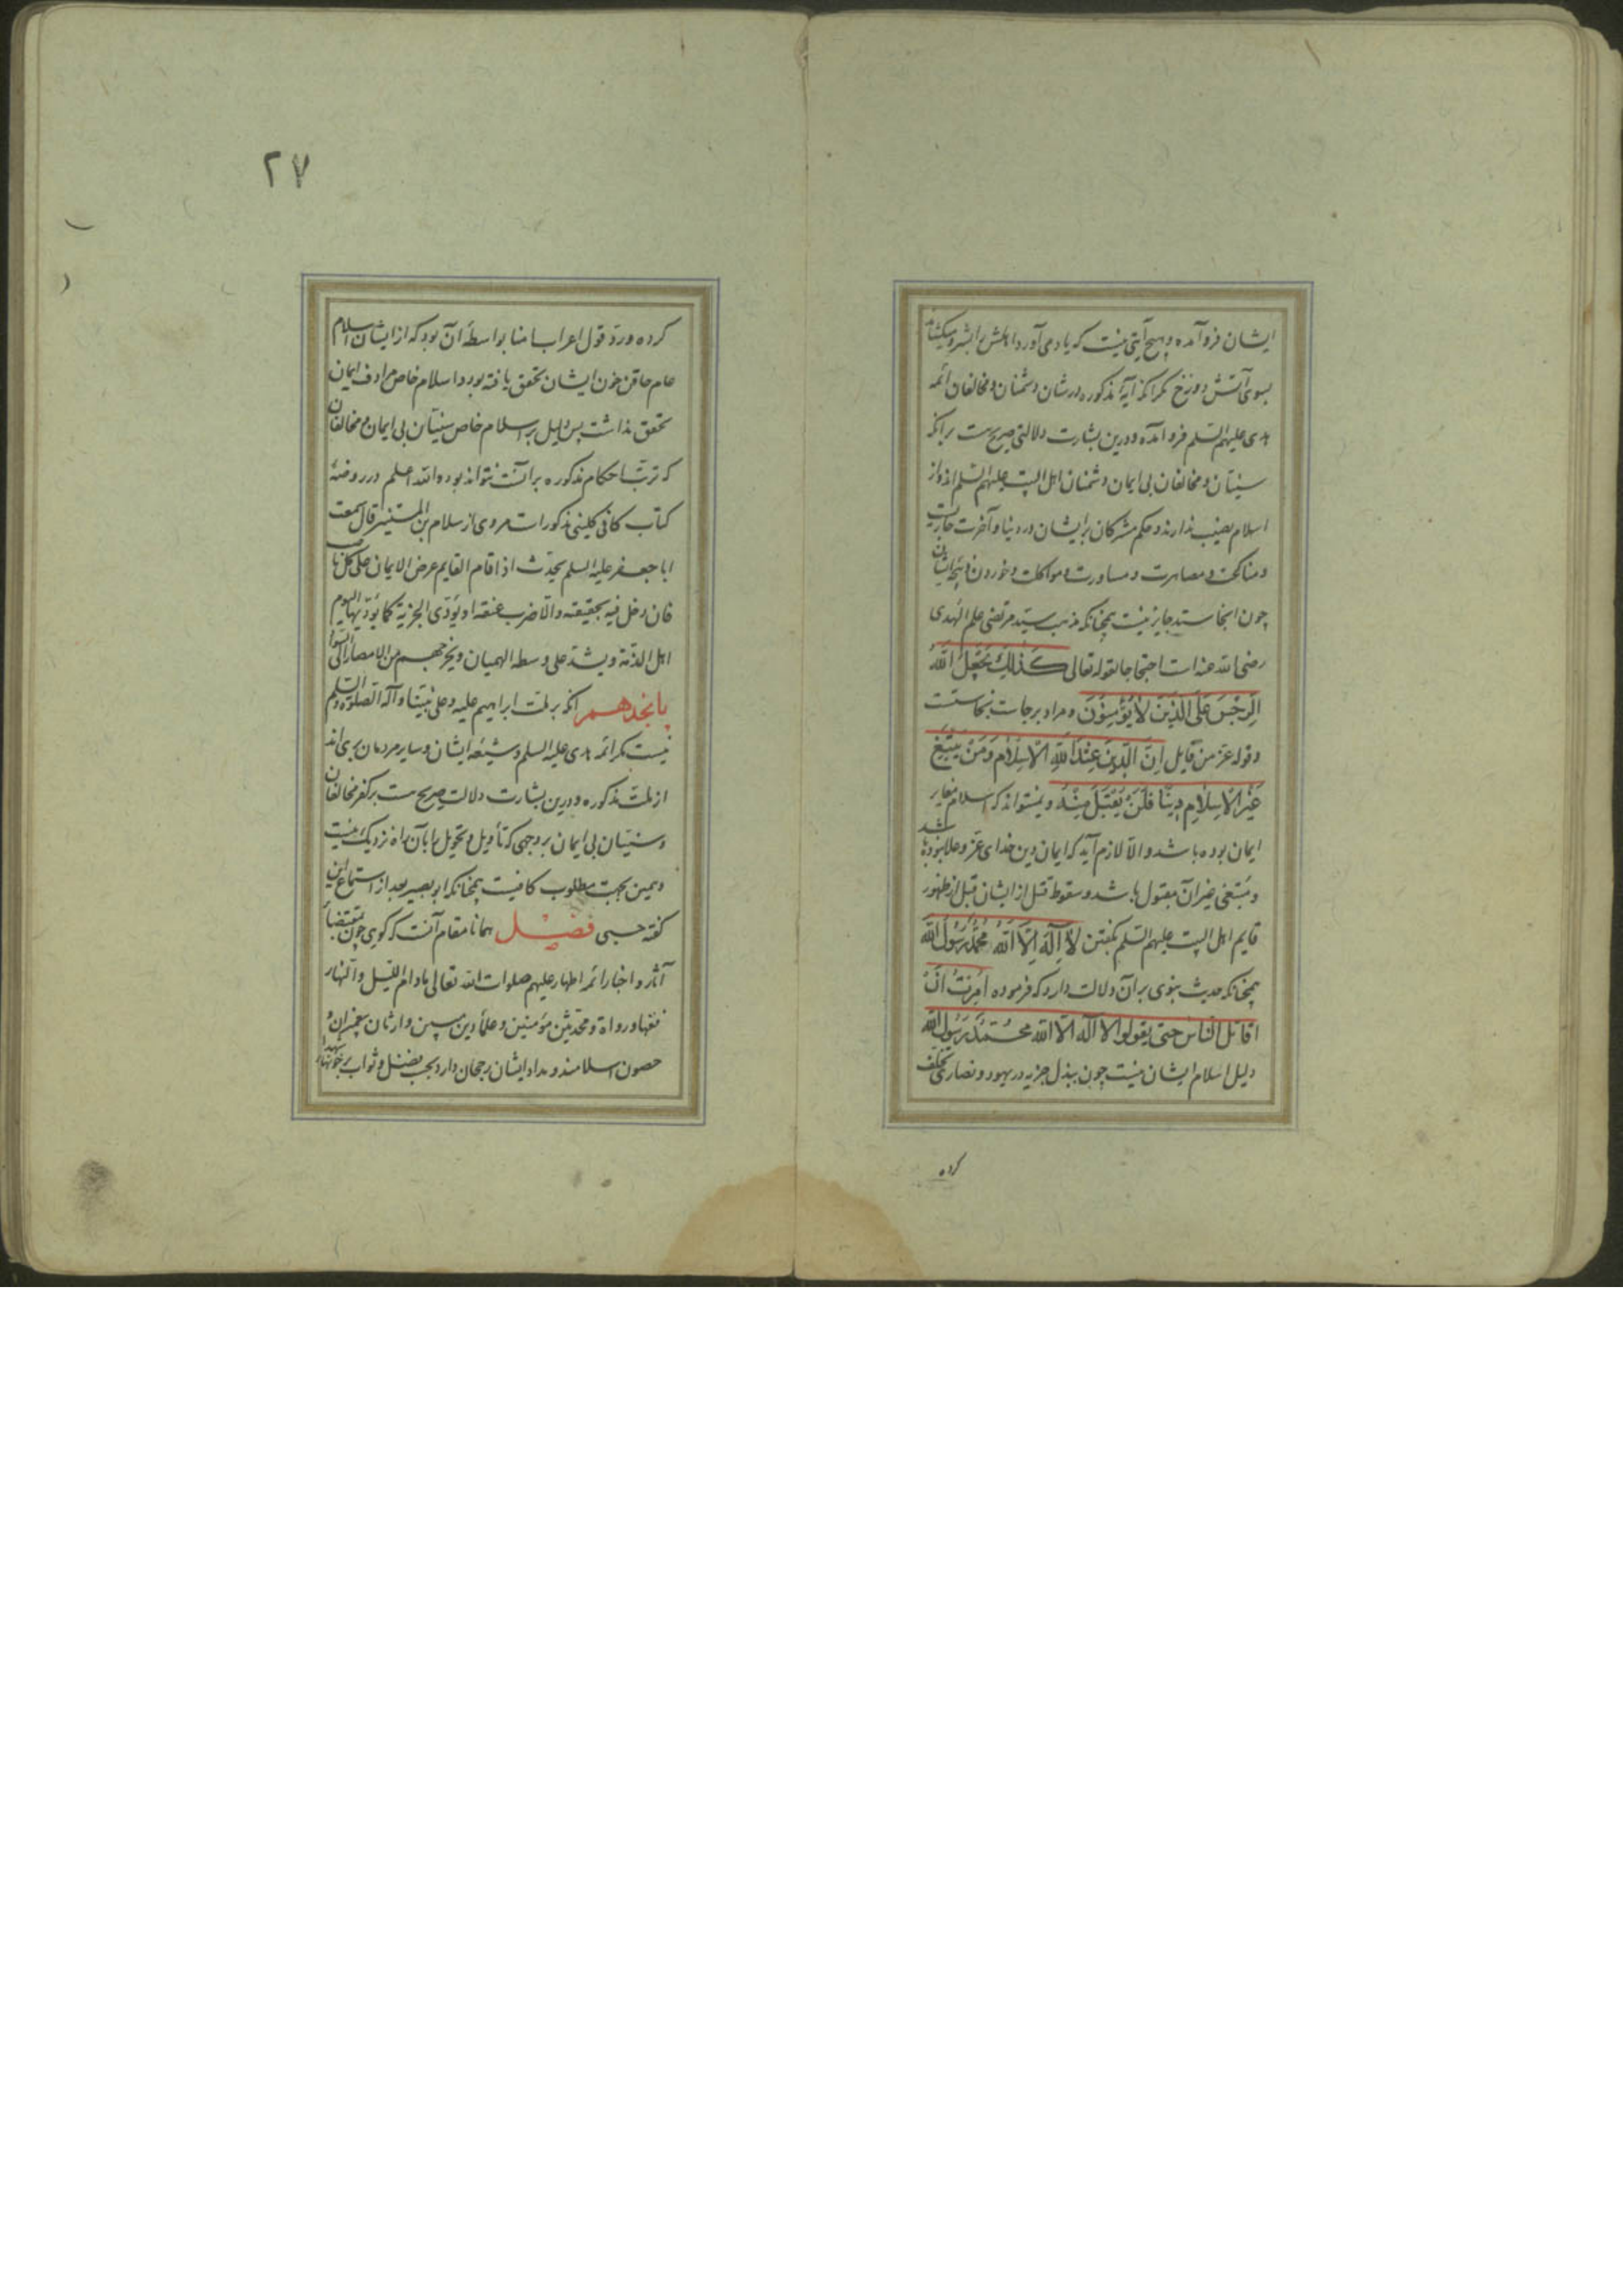 ایشان فرو آمده و هیچ آیتی نیست که یاد می آورد اهلش را بشر و میکشاند
بسوی آتش دوزخ مگر آنکه آیهٔ مذکوره در شان دشمنان و مخالفان ائمه
هدی علیهم السلم فرو آمده و درین بشارت دلالتی صریحست بر آنکه
سنیان و مخالفان بی ایمان دشمنان اهل البیت علیهم السلم اند و از
اسلام نصیب ندارند و حکم مشرکان بر ایشان در دنیا و آخرت جاریست
و مناکحت و مصاهرت و مساورت و مواکلت و خوردن ذبیحه ایشان
چون انجاسند جایز نیست چنانکه مذهب سید مرتضی علم الهدی
رضی الله عنه است احتجاجا لقوله تعالی كَذٰلِكَ يَجْعَلُ اللهُ
الرِّجْسَ عَلَى الَّذِينَ لَا يُؤْمِنُونَ و مراد برجاست نجاستست
و قوله عز من قایل اِنَّ الدِّينَ عِنْدَ اللهِ الْاِسْلَامُ وَمَنْ يَبْتَغِ
غَيْرَ الْاِسْلَامِ دِينًا فَلَنْ يُقْبَلَ مِنْهُ و نمیتواند که اسلام مغایر
ایمان بوده باشد و الا لازم آید که ایمان دین خدای عز و علا نبوده باشد
و مبتغی غیر آن مقبول باشد و سقوط قتل از ایشان قبل از ظهور
قایم اهل البیت علیهم السلم بگفتن لَا اِلٰهَ اِلَّا اللهُ مُحَمَّدٌ رَسُولُ اللهِ
چنانکه حدیث نبوی بر آن دلالت دارد که فرموده اُمِرْتُ اَنْ
اقاتل الناس حتی یقولوا لا اله الا الله محمد رسول الله
دلیل اسلام ایشان نیست چون ببذل جزیه در یهود و نصاری تخلف
کرده
۲۷
کرده و رد قول اعراب امنا بواسطهٔ آن بود که از ایشان اسلام
عام حاقن خون ایشان تحقق یافته بود و اسلام خاص مرادف ایمان
تحقق نداشت پس دلیل بر اسلام خاص سنیان بی ایمان و مخالفان
که ترتب احکام مذکوره بر آنست نتواند بود و الله اعلم در روضهٔ
کتاب کافی کلینی مذکور است مروی از سلام بن المستنیر قال سمعت
ابا جعفر علیه السلم یحدث اذا قام القایم عرض الایمان علی کل ناصب
فان دخل فیه بحقیقة و الا ضرب عنقه او یؤدی الجزیة کما یؤدیها الیوم
اهل الذمة و یشد علی وسطه الهمیان و یخرجهم من الامصار الی السواد
پانجدهم آنکه بر ملت ابراهیم علیه و علی نبینا و آله الصلوة و السلم
نیست مگر ائمه هدی علیه السلم و شیعه ایشان و سایر مردمان بری اند
از ملت مذکوره و درین بشارت دلالت صریحست بر کفر مخالفان
و سنیان بی ایمان بر وجهی که تأویل و تحویل را بآن راه نزدیک نیست
و همین بجهت مطلوب کافیست چنانکه ابو بصیر بعد از استماع این
گفته حسبی فصل همانا مقام آنست که گویی چون بمقتضأ
آثار و اخبار ائمه اطهار علیهم صلوات الله تعالی مادام اللیل و النهار
فقها و رواة و محدثین مؤمنین و علمأ دین مبین وارثان پیغمبران و
حصون اسلامند و مداد ایشان رجحان دارد بحسب فضل و ثواب بر خونهای شهدا